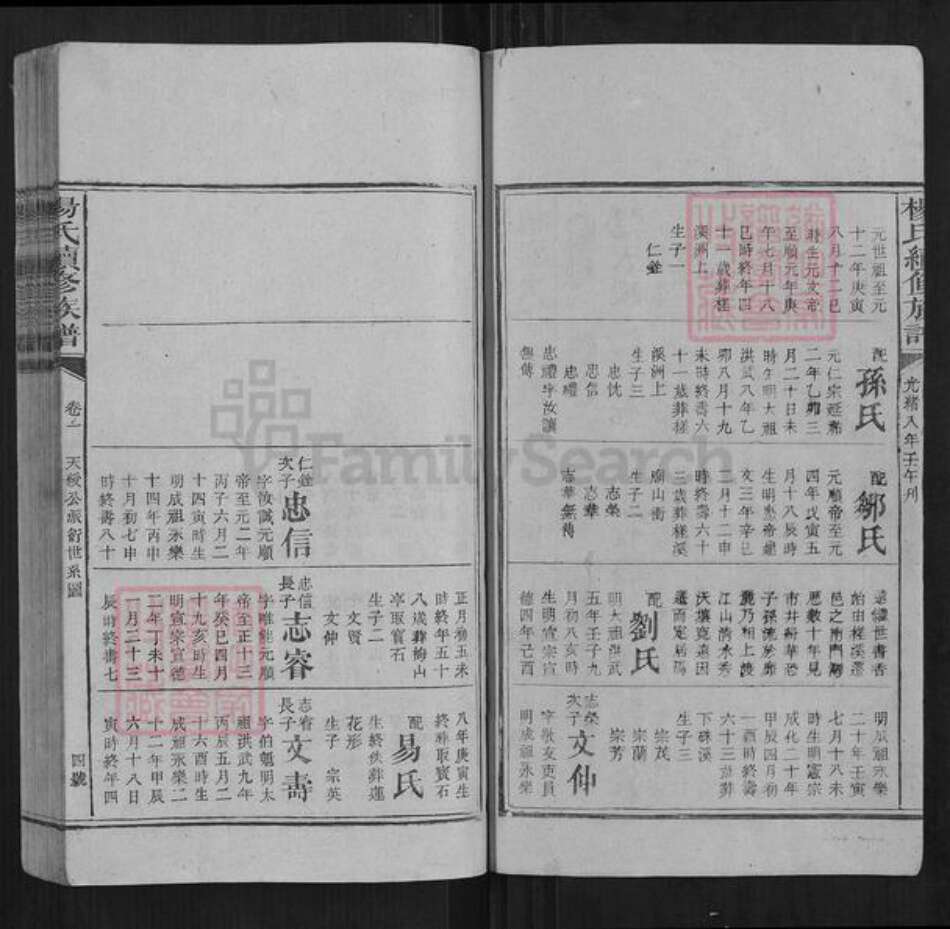 楊氏續修族譜
光緒八年壬午刋
元世祖至元
十二年庚寅
八月十二巳
時生元文帝
至順元年庚
午七月十八
巳時終年四
十一歲葬槎
溪洲上
生子一
仁銓
配
孫氏
元仁宗延祐
二年乙卯三
月二十日未
時生明太祖
洪武八年乙
卯八月十九
未時終壽六
十一歲葬槎
溪洲上
生子三
忠忱
忠信
忠禮
忠禮字汝讓
無傳
配
鄒氏
元順帝至元
四年戊寅五
月十八辰時
生明惠帝建
文三年辛巳
三月十二申
時終壽六十
三歲葬槎溪
廟山衝
生子二
志榮
志華
志華無傳
遠繼世書香
始由槎溪遷
邑之南門湖
歷數十年見
市井紛華恐
子孫流於靡
麗乃相上渡
江山清水秀
沃壤寬遠因
遷而定居焉
配
劉氏
明太祖洪武
五年壬子九
月初八亥時
生明宣宗宣
德四年己酉
明成祖永樂
二十年壬寅
七月十八未
時生明憲宗
成化二十年
甲辰四月初
一酉時終壽
六十三歲葬
下硃溪
生子三
宗茂
宗蘭
宗芳
志榮
次子
文仲
字敬友吏員
明成祖永樂
仁銓
次子
忠信
字汝誠元順
帝至元二年
丙子六月二
十四寅時生
明成祖永樂
十四年丙申
十月初七申
時終壽八十
正月初五未
時終年五十
八歲葬梅山
亭取寳石
生子二
文賢
文仲
忠信
長子
志睿
字唯能元順
帝至正十三
年癸巳四月
十九亥時生
明宣宗宣德
二年丁未十
一月二十三
辰時終壽七
八年庚寅生
終葬取寳石
配
易氏
生終佚葬蓮
花形
生子 宗英
志睿
長子
文壽
字伯魁明太
祖洪武九年
丙辰五月二
十六酉時生
成祖永樂二
十二年甲辰
六月十八日
寅時終年四
楊氏續修族譜
卷二
天椄公派衍世系圖
四號
FamilySearch